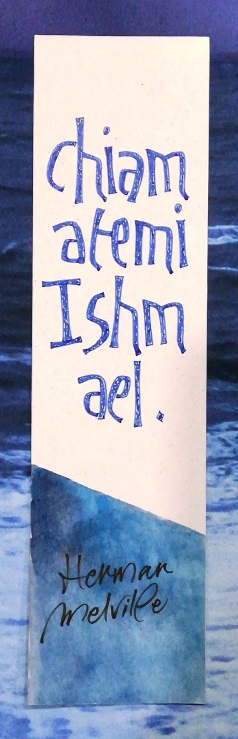 chiam
atemi
Ishm
ael.
Herman
Melville